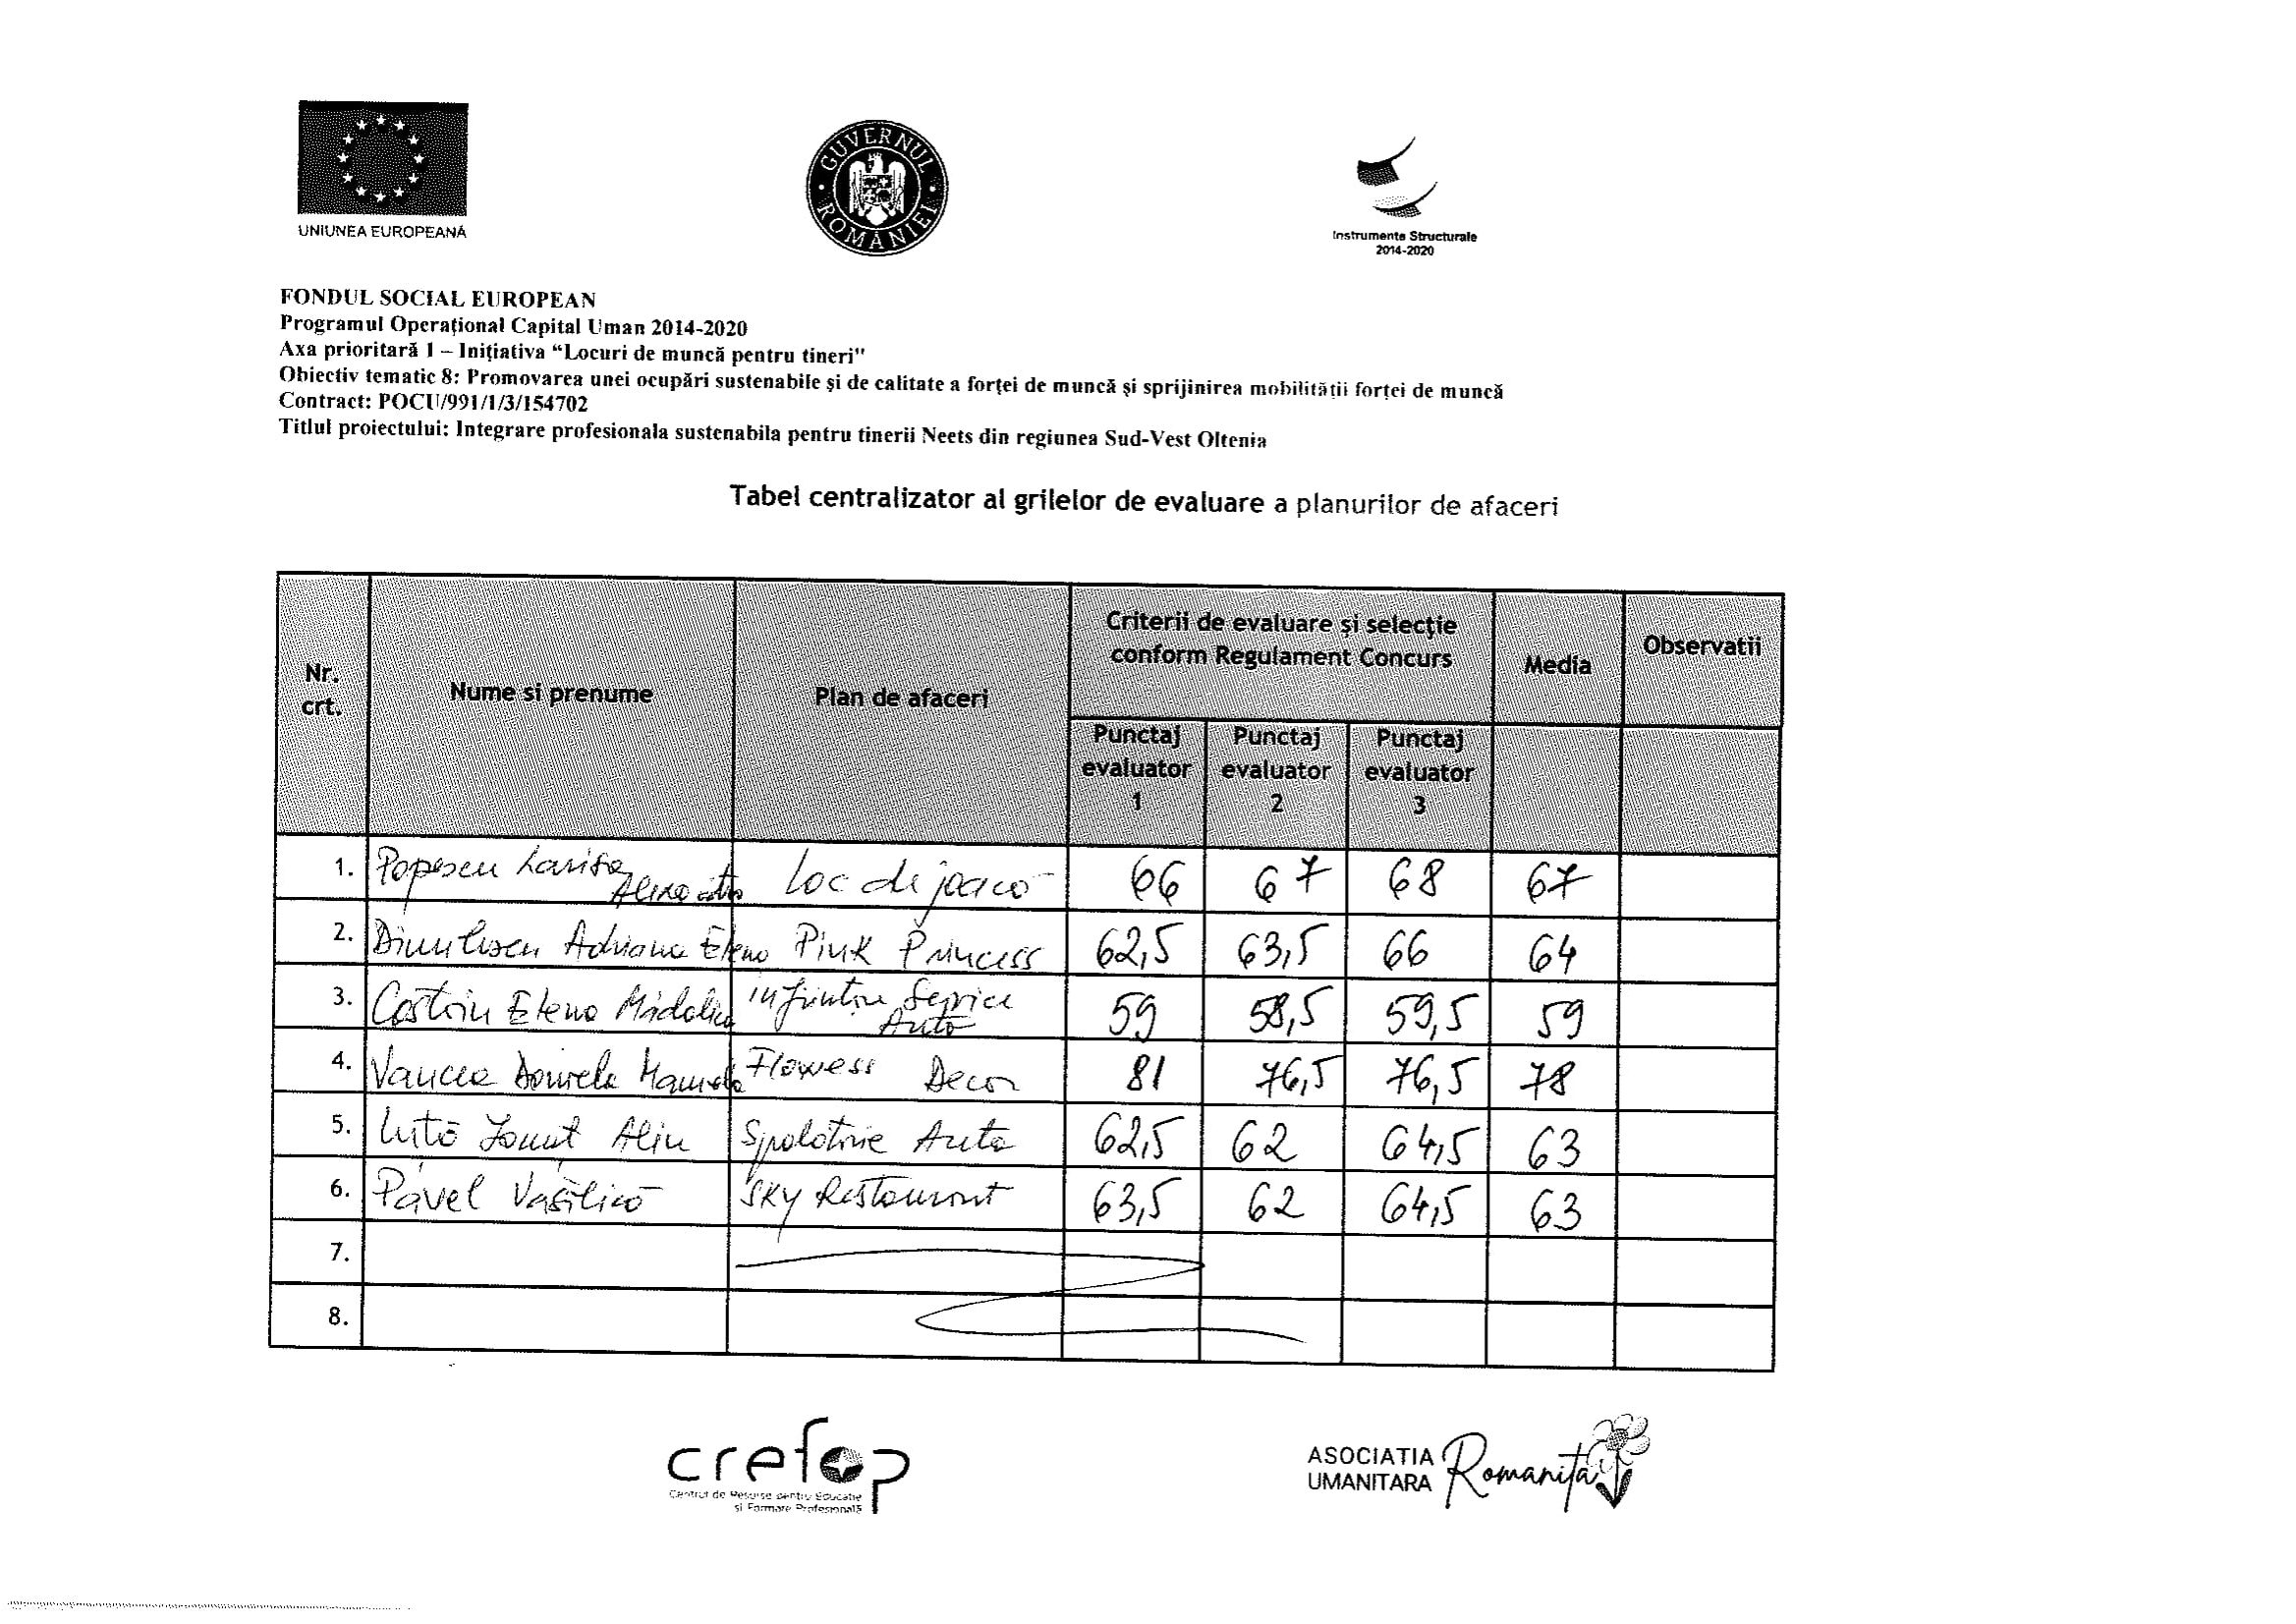 UNIUNEA EUROPEANĂ
GUVERNUL ROMÂNIEI
Instrumente Structurale
2014-2020
FONDUL SOCIAL EUROPEAN
Programul Operațional Capital Uman 2014-2020
Axa prioritară 1 – Inițiativa “Locuri de muncă pentru tineri"
Obiectiv tematic 8: Promovarea unei ocupări sustenabile și de calitate a forței de muncă și sprijinirea mobilității forței de muncă
Contract: POCU/991/1/3/154702
Titlul proiectului: Integrare profesionala sustenabila pentru tinerii Neets din regiunea Sud-Vest Oltenia
Tabel centralizator al grilelor de evaluare a planurilor de afaceri
Nr. crt.
Nume si prenume
Plan de afaceri
Criterii de evaluare și selecție conform Regulament Concurs
Media
Observatii
Punctaj evaluator 1
Punctaj evaluator 2
Punctaj evaluator 3
1. Popescu Larisa Loc de joacă 66 67 68 67
2. Adriana Elena Pink Princess 62,5 63,5 66 64
3. Elena Mădălina Service Auto 59 58,5 59,5 59
4. Vancea Daniela Flowers Decor 81 76,5 76,5 78
5. Ionut Alin Spălătorie Auto 62,5 62 64,5 63
6. Pavel Vasilică SKY Restaurant 63,5 62 64,5 63
7.
8.
crefop
Centrul de Resurse pentru Educatie
si Formare Profesională
ASOCIATIA
UMANITARA
Romanița